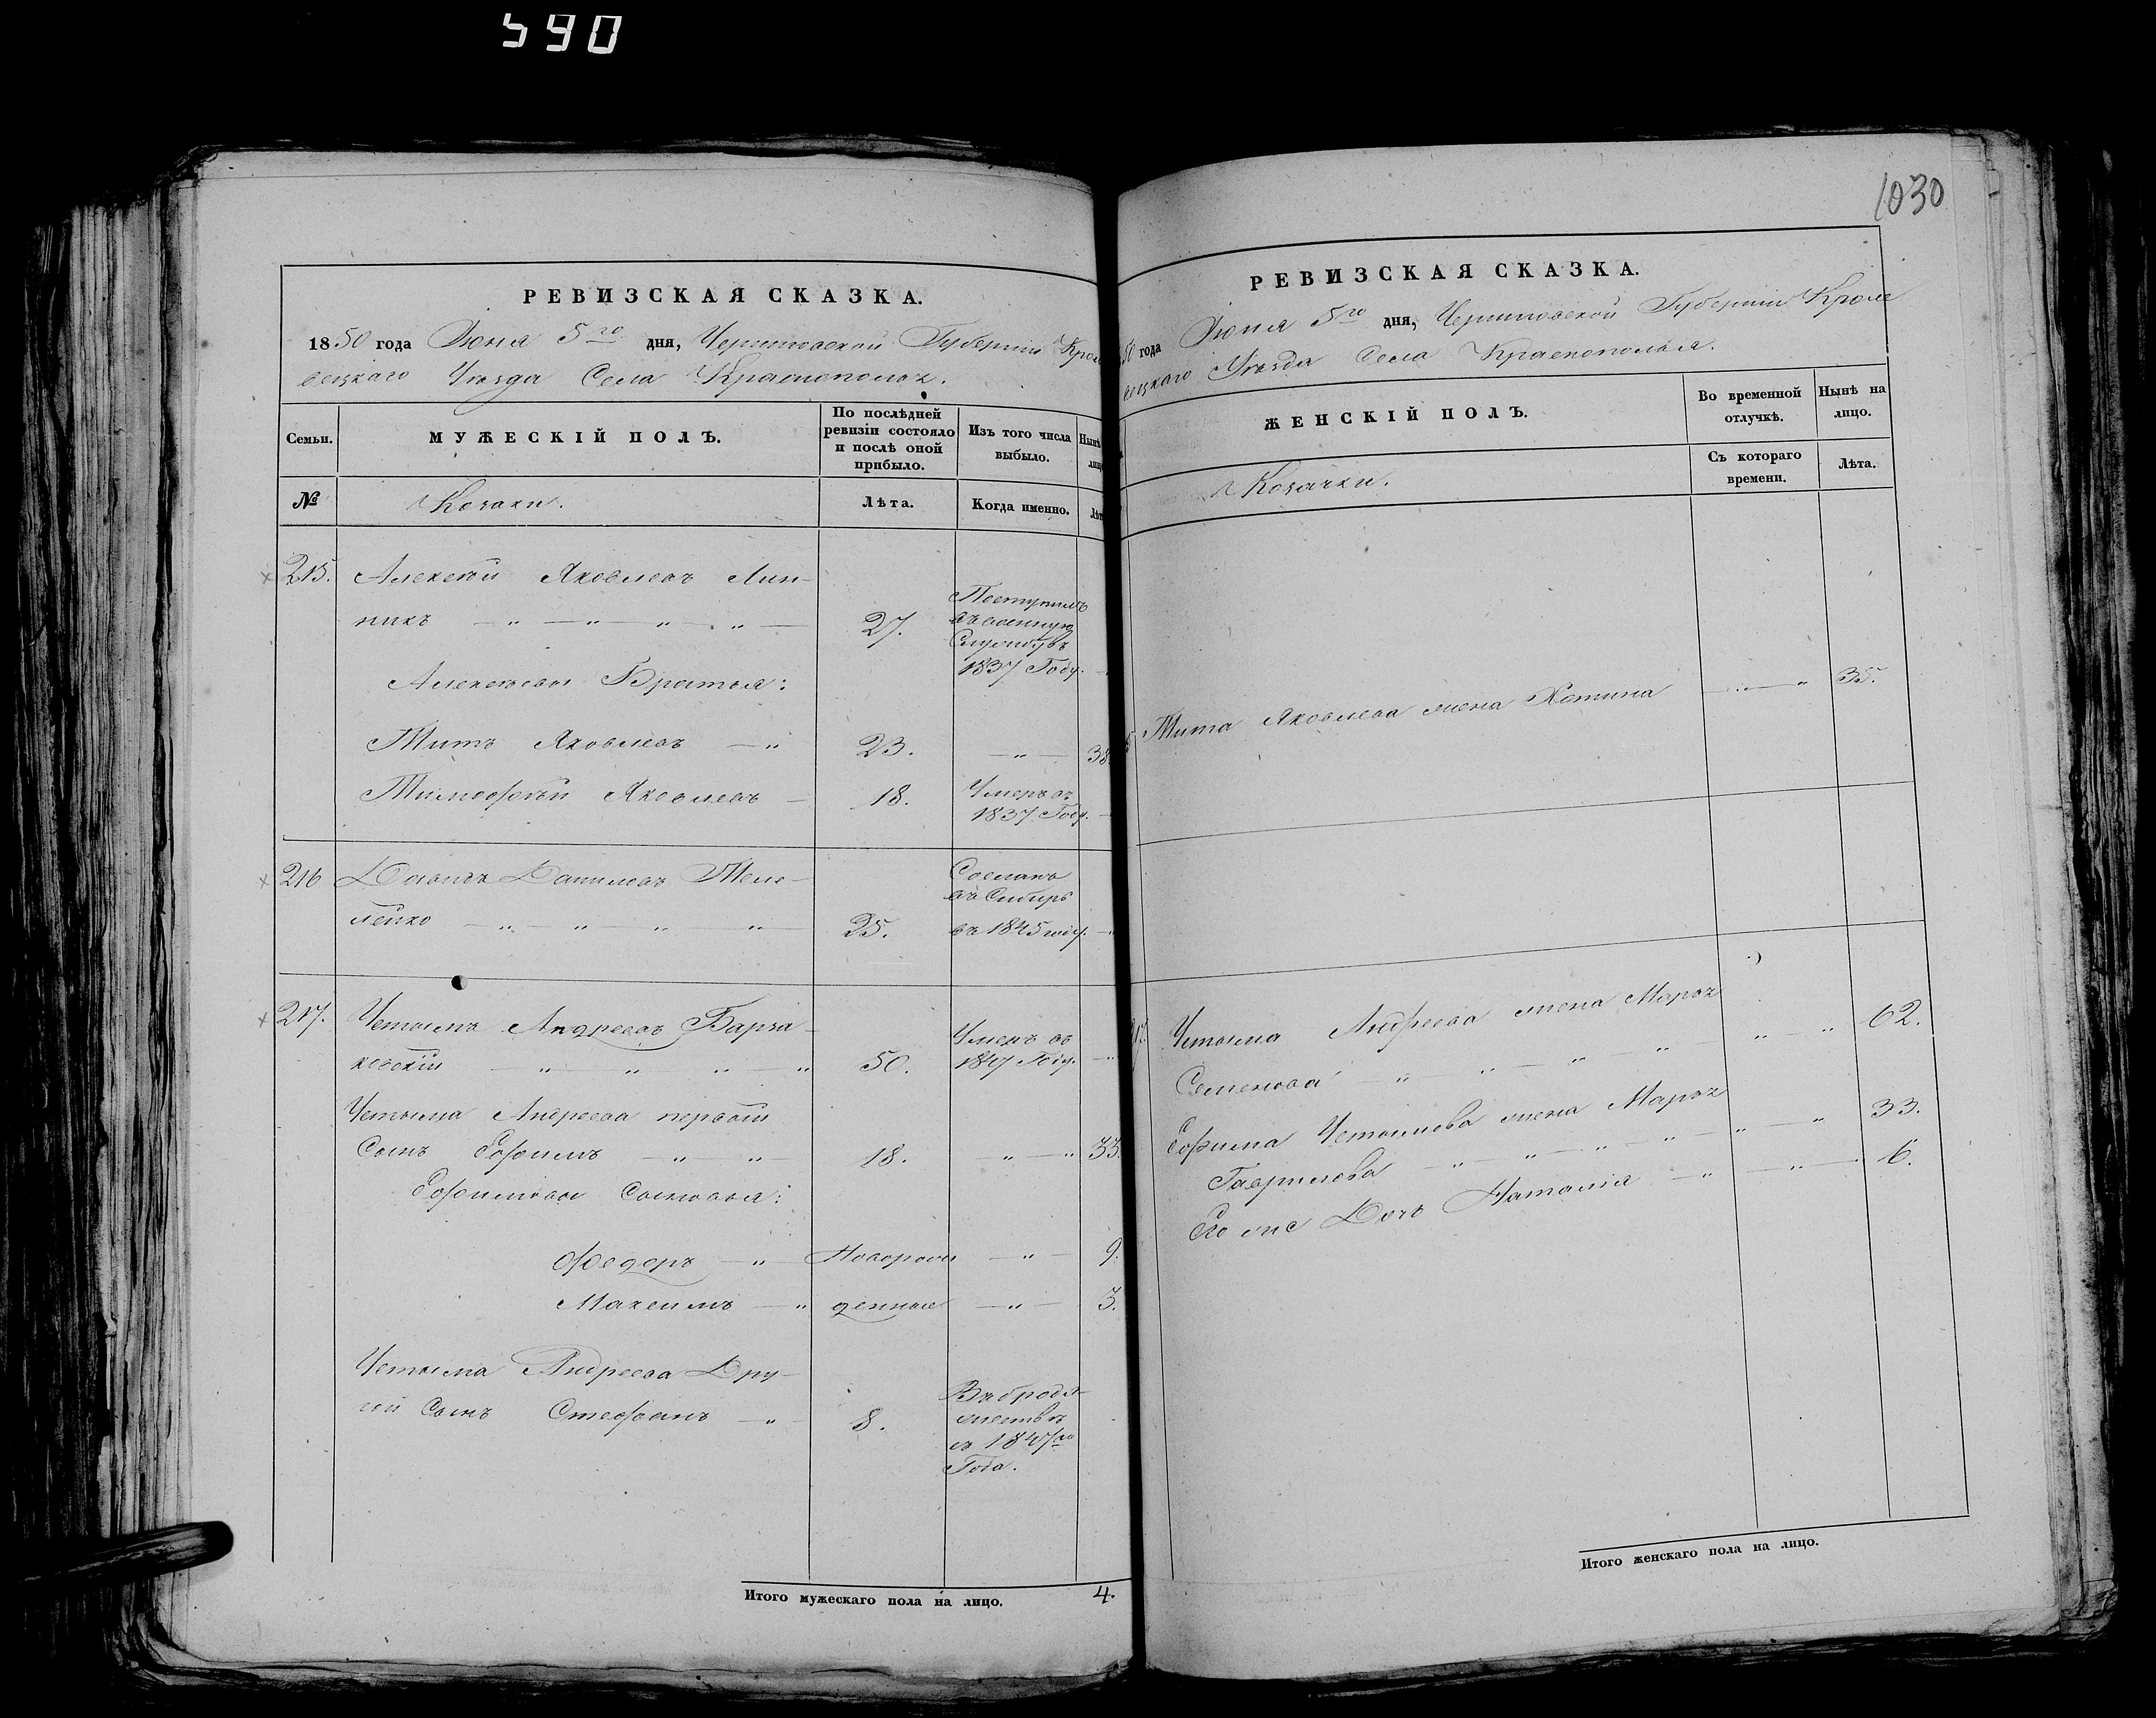 590
1030
РЕВИЗСКАЯ СКАЗКА.
1850 года Июня 5го дня, Черниговской Губернiи Кроле
вецкаго Уѣзда Села Краснополья.
Семьи.
МУЖЕСКІЙ ПОЛЪ.
По послѣдней ревизіи состояло и послѣ оной прибыло.
Изъ того числа выбыло.
№
Козаки.
Лѣта.
Когда именно.
215. Алексѣй Яковлевъ Лин-
никъ 27. Поступилъ
въ военную
Службу въ
1837 Году.
Алексѣевы Братья:
Титъ Яковлевъ 23. 38.
Тимофѣй Яковлевъ 18. Умеръ въ
1837 Году.
216 Давидъ Даниловъ Теле-
Сосланъ
въ Сибирь
25. въ 1845 году.
217. Устимъ Андреевъ Барча-
ковскій 50. Умеръ въ
1847 Году.
Устима Андреева первый
Сынъ Ефимъ 18. 33.
Ефимовы Сыновья:
Федоръ Новорож 9.
Максимъ денные 3.
Устима Андреева Дру-
гой Сынъ Стефанъ 8. Въ бродя-
жествѣ
съ 1847го
Года.
Итого мужескаго пола на лицо. 4.
РЕВИЗСКАЯ СКАЗКА.
50 года Июня 5го дня, Черниговской Губерніи Кроле
вецкаго Уѣзда Села Краснополья.
ЖЕНСКІЙ ПОЛЪ.
Во временной отлучкѣ.
Нынѣ на лицо.
Козачки.
Съ котораго времени.
Лѣта.
Тита Яковлева жена 35.
217. Устима Андреева жена Марья
Семенова 62.
Ефима Устимова жена Марья
Гаврилова 33.
Его же Дочь Наталія 6.
Итого женскаго пола на лицо.